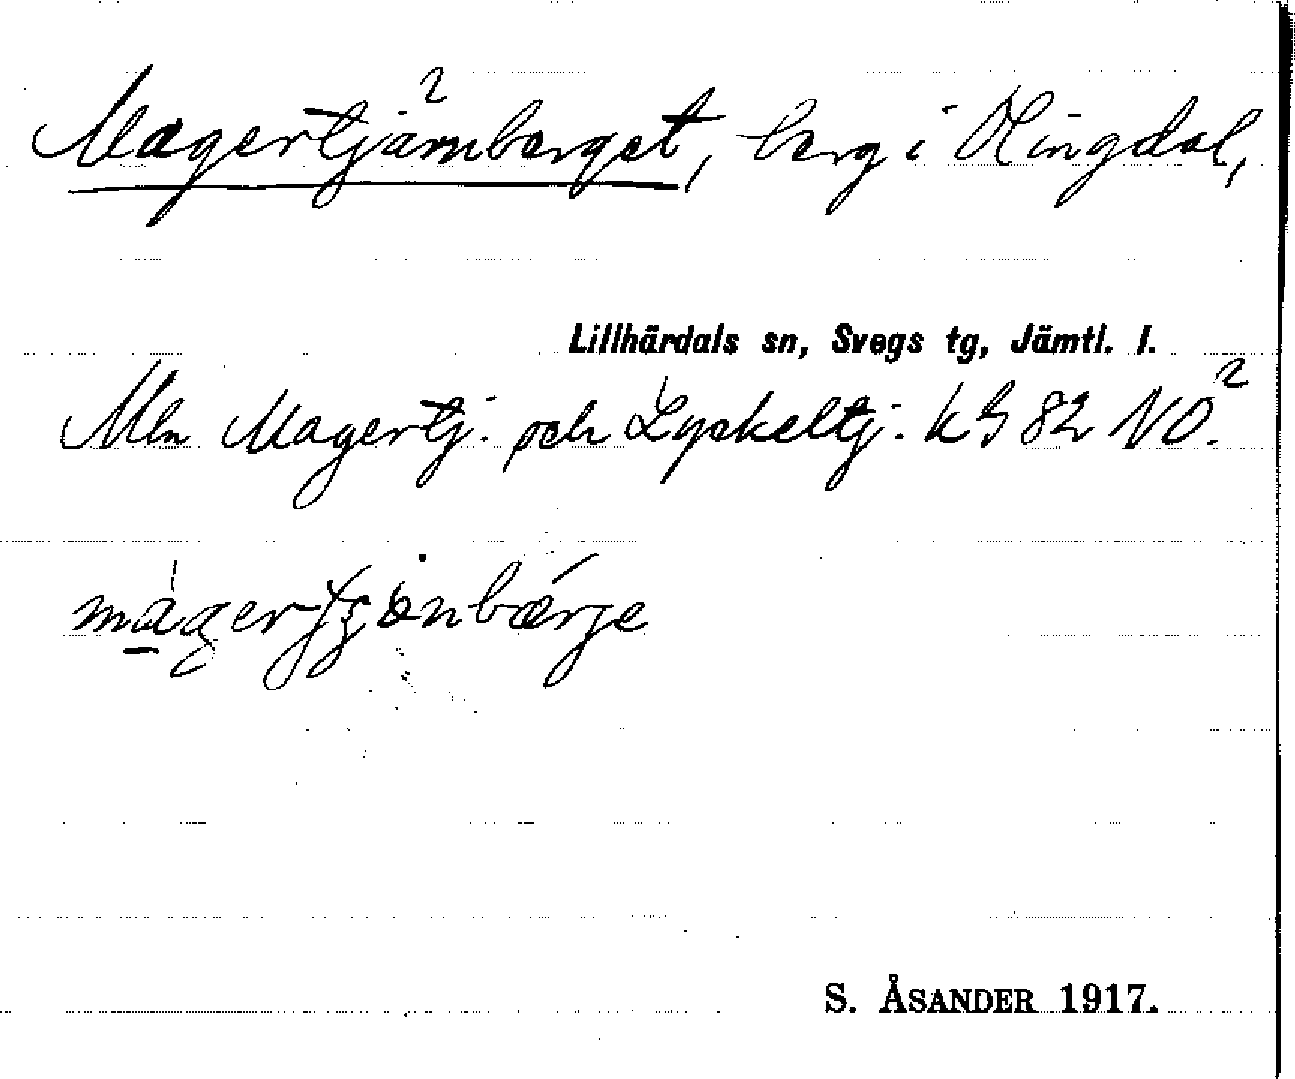 Magertjärnberget, berg i Olingdal,
Lillhärdals sn, Svegs tg, Jämtl. l.
Mln Magertj. och Lyskeltj. kS 82 NO.²
S. ÅSANDER 1917.